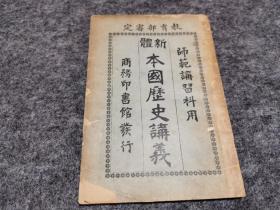 教育部審定
師範講習科用
新體
本國歷史講義
商務印書館發行